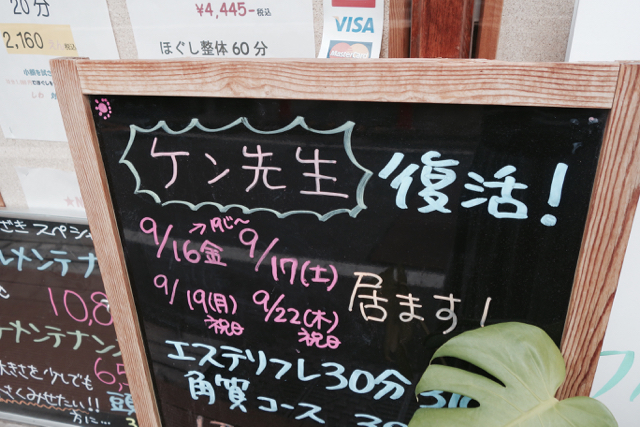 20分
2,160 税込
¥4,445-税込
ほぐし整体60分
VISA
MasterCard
ケン先生 復活!
→19じ〜
9/16金 9/17(土)
9/19(月)祝日 9/22(木)祝日 居ます!
エステリフレ30分
角質コース
スペシ
メンテナ
10,8
メンテナン
大きさを少しでも
さくみせたい!!
方に…